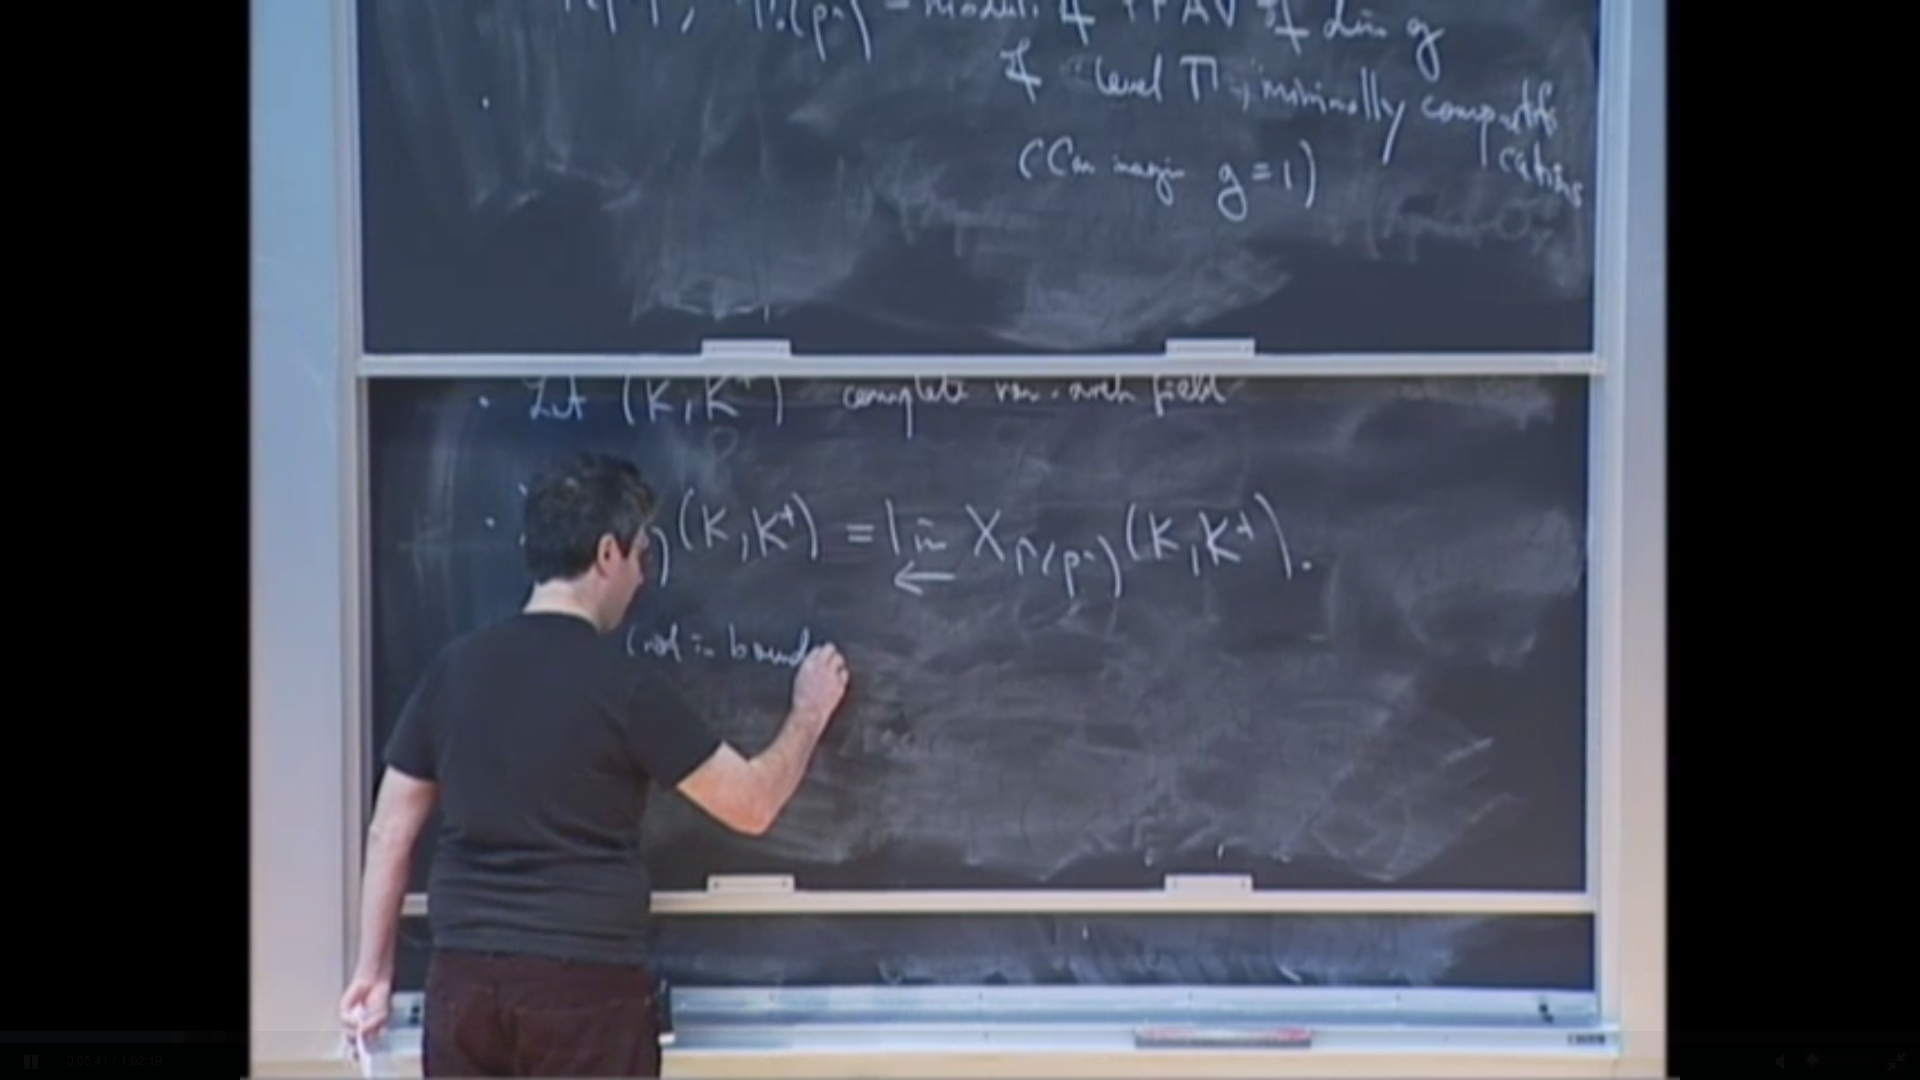 Γ(pⁿ) = moduli of PPAV of dim g
of level Γ, minimally compactifi
cations
(Can imagine g=1)
· Let (K, K⁺) complete non-arch field
· )(K, K⁺) = lim X_Γ(pⁿ)(K, K⁺).
←
(not in bound
0:05:41 / 1:02:19